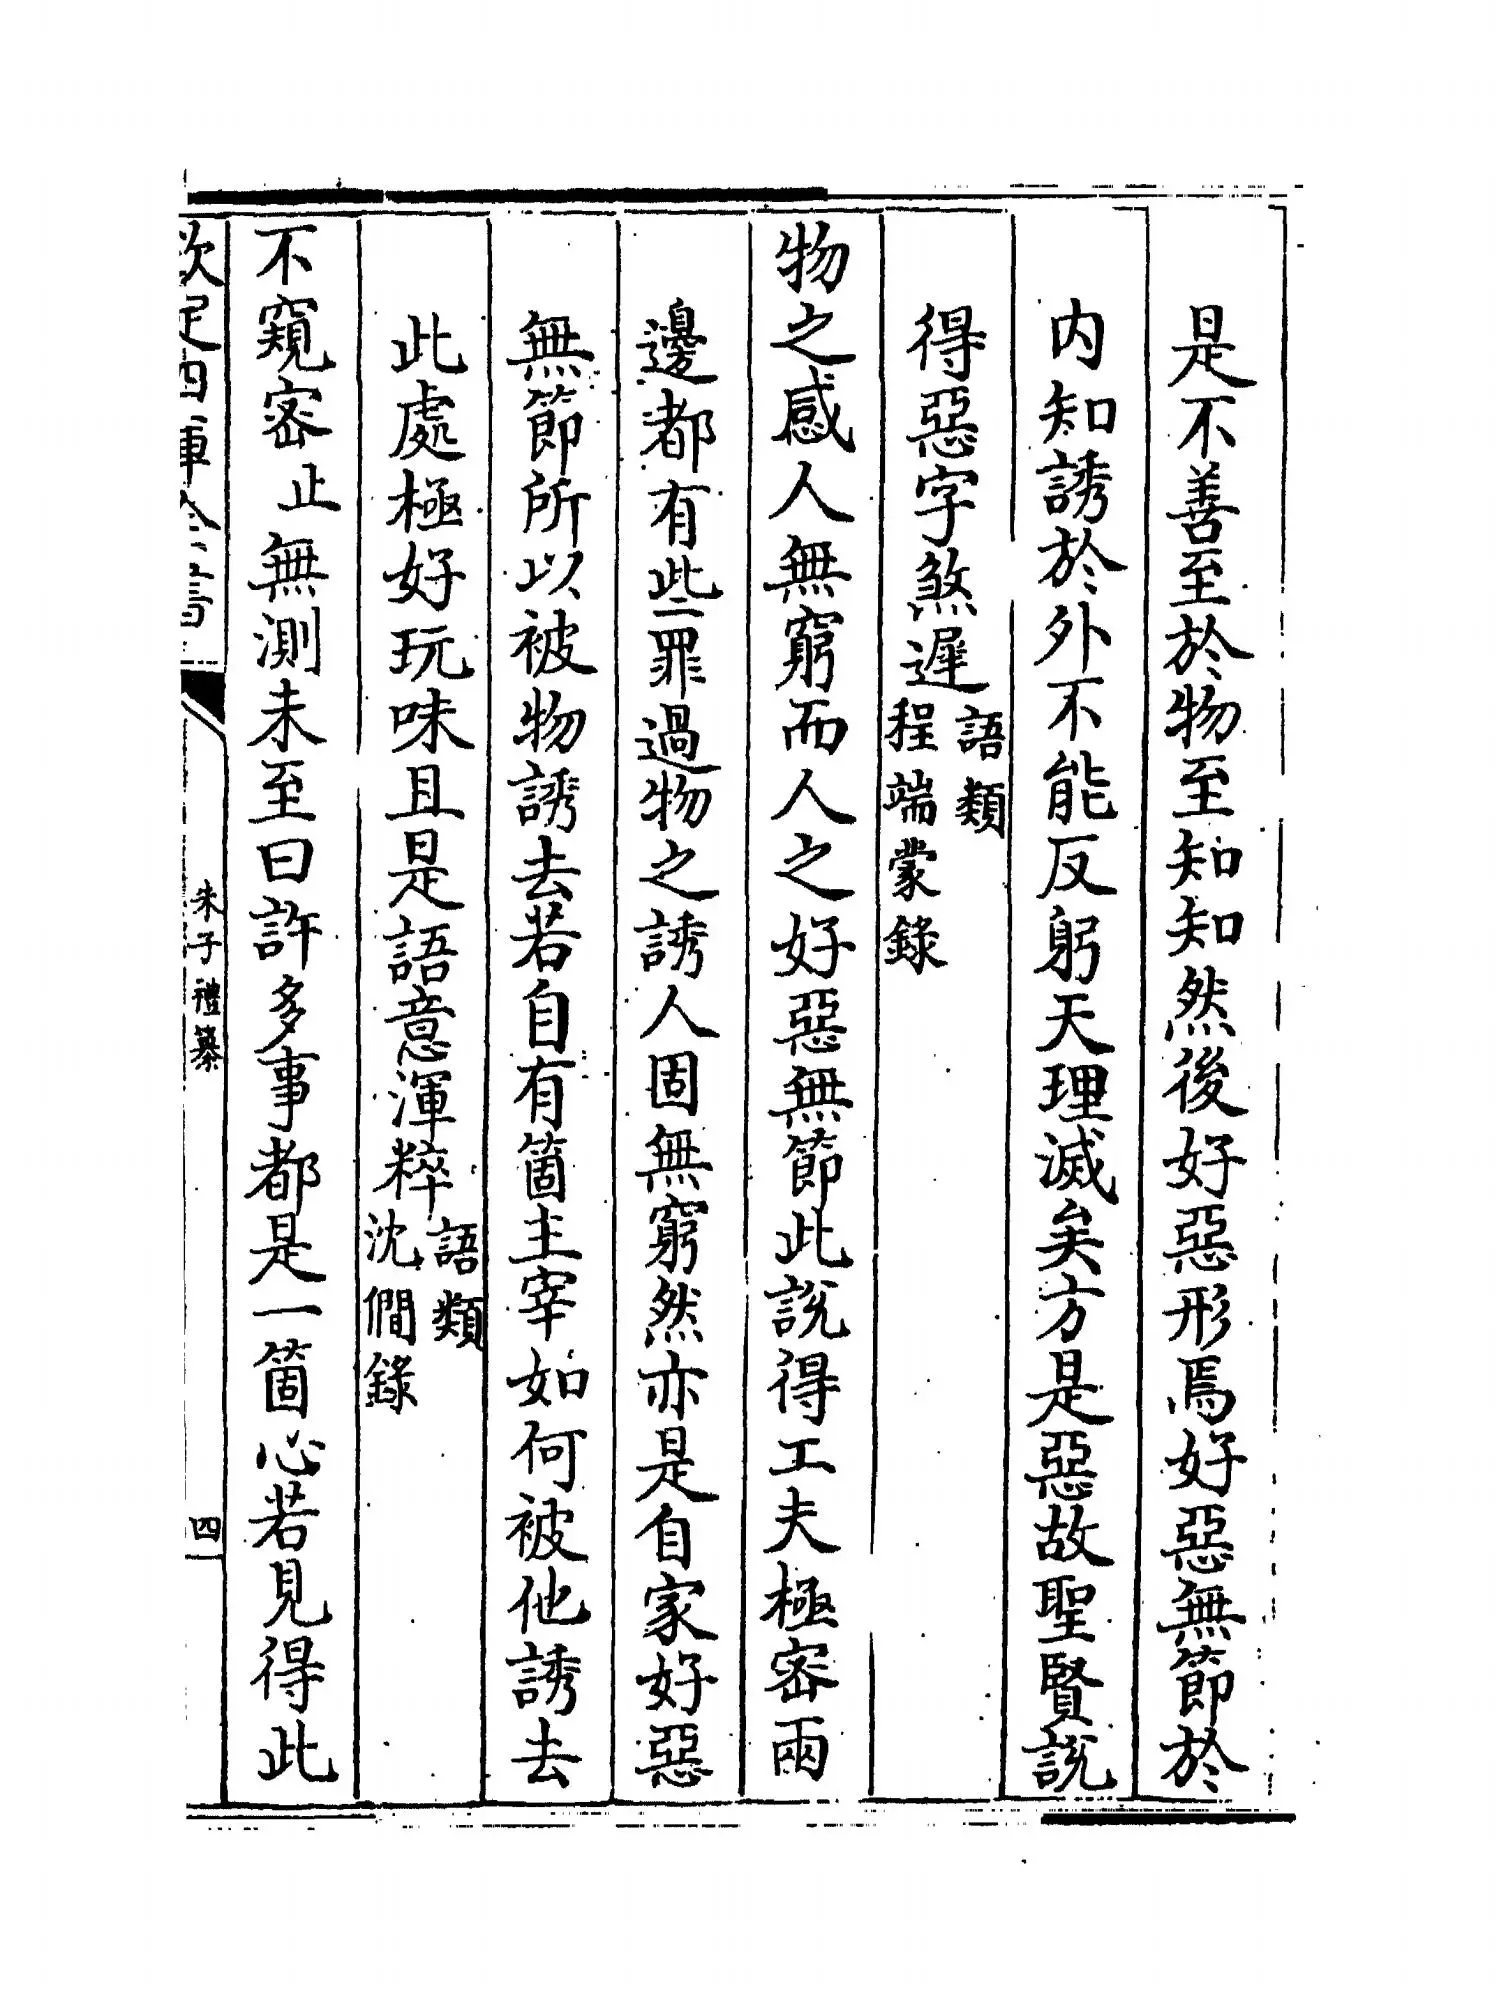 是不善至於物至知知然後好惡形焉好惡無節於
內知誘於外不能反躬天理滅矣方是惡故聖賢說
得惡字煞遲語類
程端蒙錄
物之感人無窮而人之好惡無節此說得工夫極密兩
邊都有些罪過物之誘人固無窮然亦是自家好惡
無節所以被物誘去若自有箇主宰如何被他誘去
此處極好玩味且是語意渾粹語類
沈僩錄
不窺密止無測未至曰許多事都是一箇心若見得此
欽定四庫全書
朱子禮纂
四